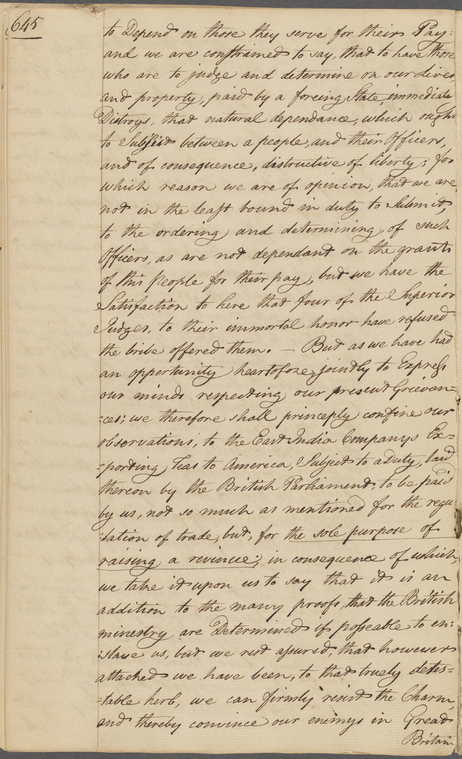 645
to Depend on those they serve for theirs Pay:
and we are constrained to say, that to have those
who are to judge and determine on our lives
and property, paid by a foreing State, immediate
Distroys, that natural dependance, which ought
to Subsist between a people, and their Officers,
and of consequence, distructive of liberty; for
which reason we are of opinion, that we are
not in the least bound in duty to Submit,
to the ordering and determining, of such
Officers, as are not dependant on the grants
of this people for their pay, but we have the
Satisfaction to here that four of the Superior
Judges, to their immortal honor have refused
the bribe offered them. — But as we have had
an opportunity heartofore, jointly to Express
our minds respecting our present Greevan=
=ces; we therefore shall princeply confine our
observations, to the East India Companys Ex=
=porting Teas to America, Subject to a Duty, laid
thereon by the British Parliament, to be paid
by us, not so much as mentioned for the regu
lation of trade, but, for the sole purpose of
raising a revinue; in consequence of which,
we take it upon us to say that it is an
addition to the many proofs, that the British
minestry are Determined if posseable to en:
slave us, but we rest assured, that however
attached we have been, to that truely detes=
=table herb, we can firmly resist the Charm,
and thereby convince our enimys in Great
Britain